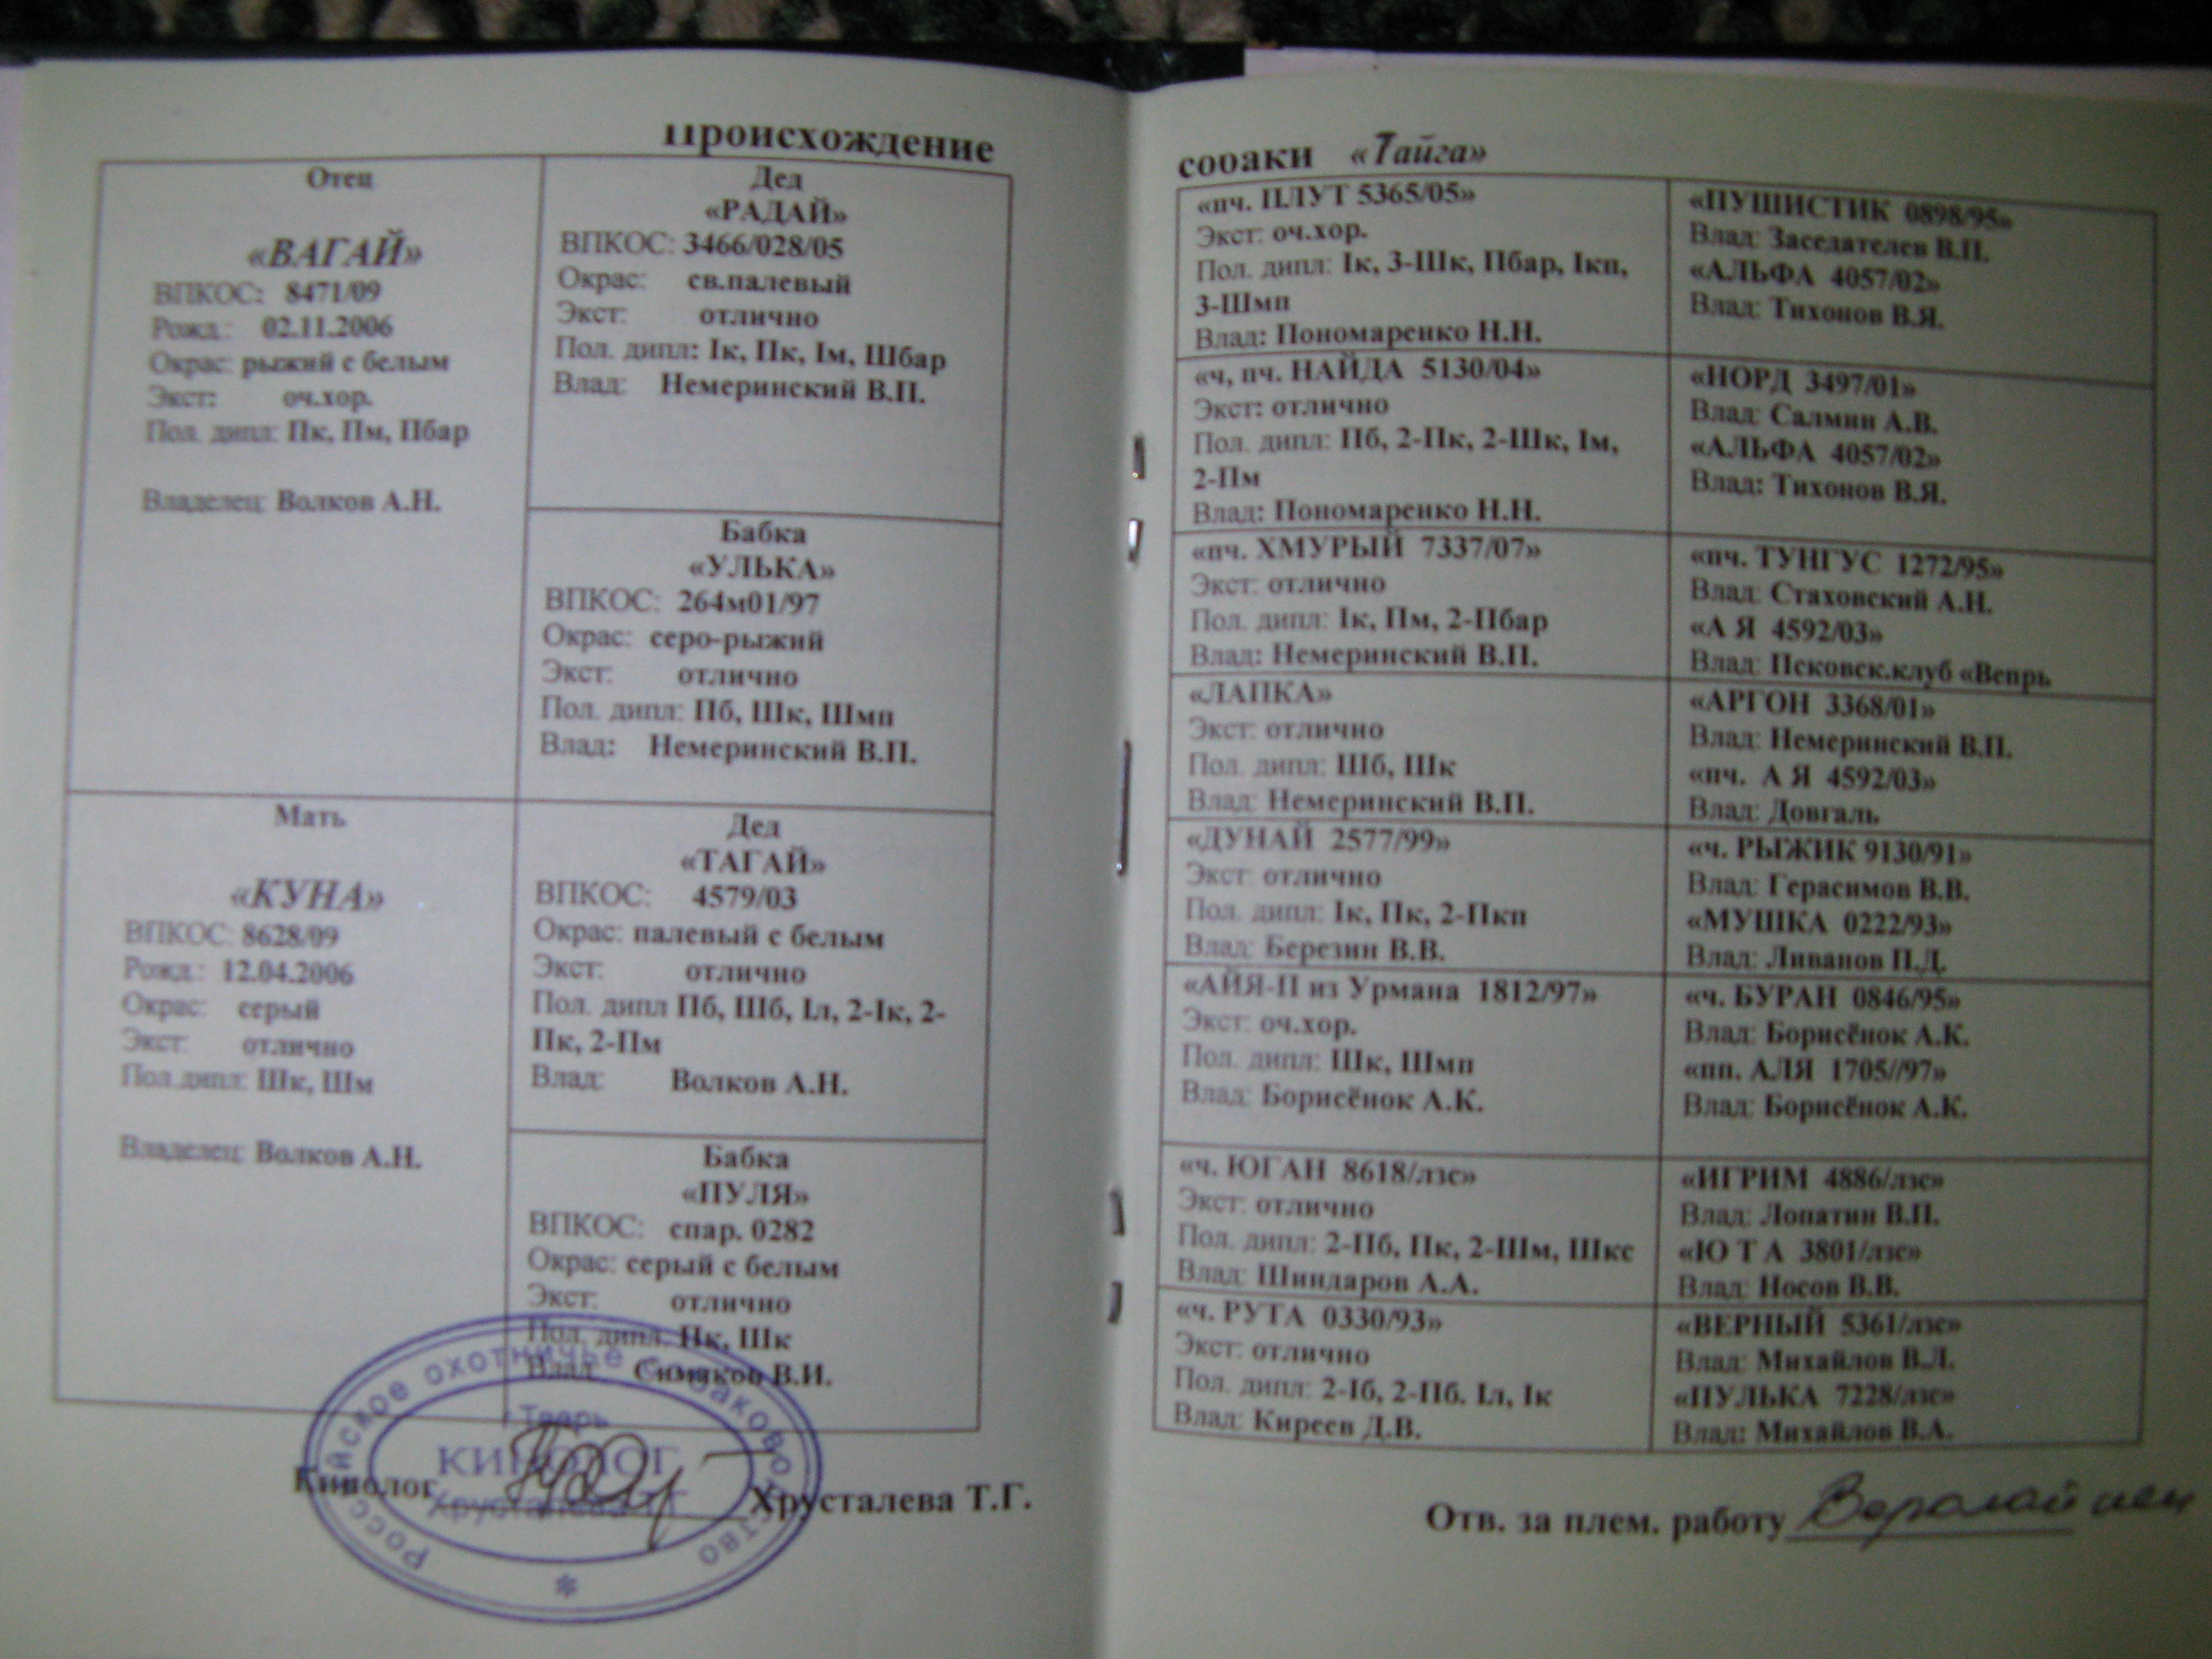 Происхождение
Отец
«ВАГАЙ»
ВПКОС: 8471/09
Рожд.: 02.11.2006
Окрас: рыжий с белым
Экст: оч.хор.
Пол. дипл: Пк, Пм, Пбар
Владелец: Волков А.Н.
Дед
«РАДАЙ»
ВПКОС: 3466/028/05
Окрас: св.палевый
Экст: отлично
Пол. дипл: Iк, Пк, Iм, Шбар
Влад: Немеринский В.П.
Бабка
«УЛЬКА»
ВПКОС: 264м01/97
Окрас: серо-рыжий
Экст: отлично
Пол. дипл: Пб, Шк, Шмп
Влад: Немеринский В.П.
Мать
«КУНА»
ВПКОС: 8628/09
Рожд.: 12.04.2006
Окрас: серый
Экст: отлично
Пол.дипл: Шк, Шм
Владелец: Волков А.Н.
Дед
«ТАГАЙ»
ВПКОС: 4579/03
Окрас: палевый с белым
Экст: отлично
Пол. дипл Пб, Шб, Iл, 2-Iк, 2-
Пк, 2-Пм
Влад: Волков А.Н.
Бабка
«ПУЛЯ»
ВПКОС: спар. 0282
Окрас: серый с белым
Экст: отлично
Пол. дипл: Пк, Шк
Влад: Симаков В.И.
Российское охотничье собаководство
г.Тверь
КИНОЛОГ
Хрусталева Т.Г.
Кинолог Хрусталева Т.Г.
собаки «Тайга»
«пч. ПЛУТ 5365/05»
Экст: оч.хор.
Пол. дипл: Iк, 3-Шк, Пбар, Iкп,
3-Шмп
Влад: Пономаренко Н.Н.
«ПУШИСТИК 0898/95»
Влад: Заседателев В.П.
«АЛЬФА 4057/02»
Влад: Тихонов В.Я.
«ч, пч. НАЙДА 5130/04»
Экст: отлично
Пол. дипл: Пб, 2-Пк, 2-Шк, Iм,
2-Пм
Влад: Пономаренко Н.Н.
«НОРД 3497/01»
Влад: Салмин А.В.
«АЛЬФА 4057/02»
Влад: Тихонов В.Я.
«пч. ХМУРЫЙ 7337/07»
Экст: отлично
Пол. дипл: Iк, Пм, 2-Пбар
Влад: Немеринский В.П.
«пч. ТУНГУС 1272/95»
Влад: Стаховский А.Н.
«А Я 4592/03»
Влад: Псковск.клуб «Вепрь
«ЛАПКА»
Экст: отлично
Пол. дипл: Шб, Шк
Влад: Немеринский В.П.
«АРГОН 3368/01»
Влад: Немеринский В.П.
«пч. А Я 4592/03»
Влад: Довгаль
«ДУНАЙ 2577/99»
Экст: отлично
Пол. дипл: Iк, Пк, 2-Пкп
Влад: Березин В.В.
«ч. РЫЖИК 9130/91»
Влад: Герасимов В.В.
«МУШКА 0222/93»
Влад: Ливанов П.Д.
«АЙЯ-II из Урмана 1812/97»
Экст: оч.хор.
Пол. дипл: Шк, Шмп
Влад: Борисёнок А.К.
«ч. БУРАН 0846/95»
Влад: Борисёнок А.К.
«пп. АЛЯ 1705//97»
Влад: Борисёнок А.К.
«ч. ЮГАН 8618/лзс»
Экст: отлично
Пол. дипл: 2-Пб, Пк, 2-Шм, Шкс
Влад: Шиндаров А.А.
«ИГРИМ 4886/лзс»
Влад: Лопатин В.П.
«Ю Т А 3801/лзс»
Влад: Носов В.В.
«ч. РУТА 0330/93»
Экст: отлично
Пол. дипл: 2-Iб, 2-Пб. Iл, Iк
Влад: Киреев Д.В.
«ВЕРНЫЙ 5361/лзс»
Влад: Михайлов В.Л.
«ПУЛЬКА 7228/лзс»
Влад: Михайлов В.А.
Отв. за плем. работу